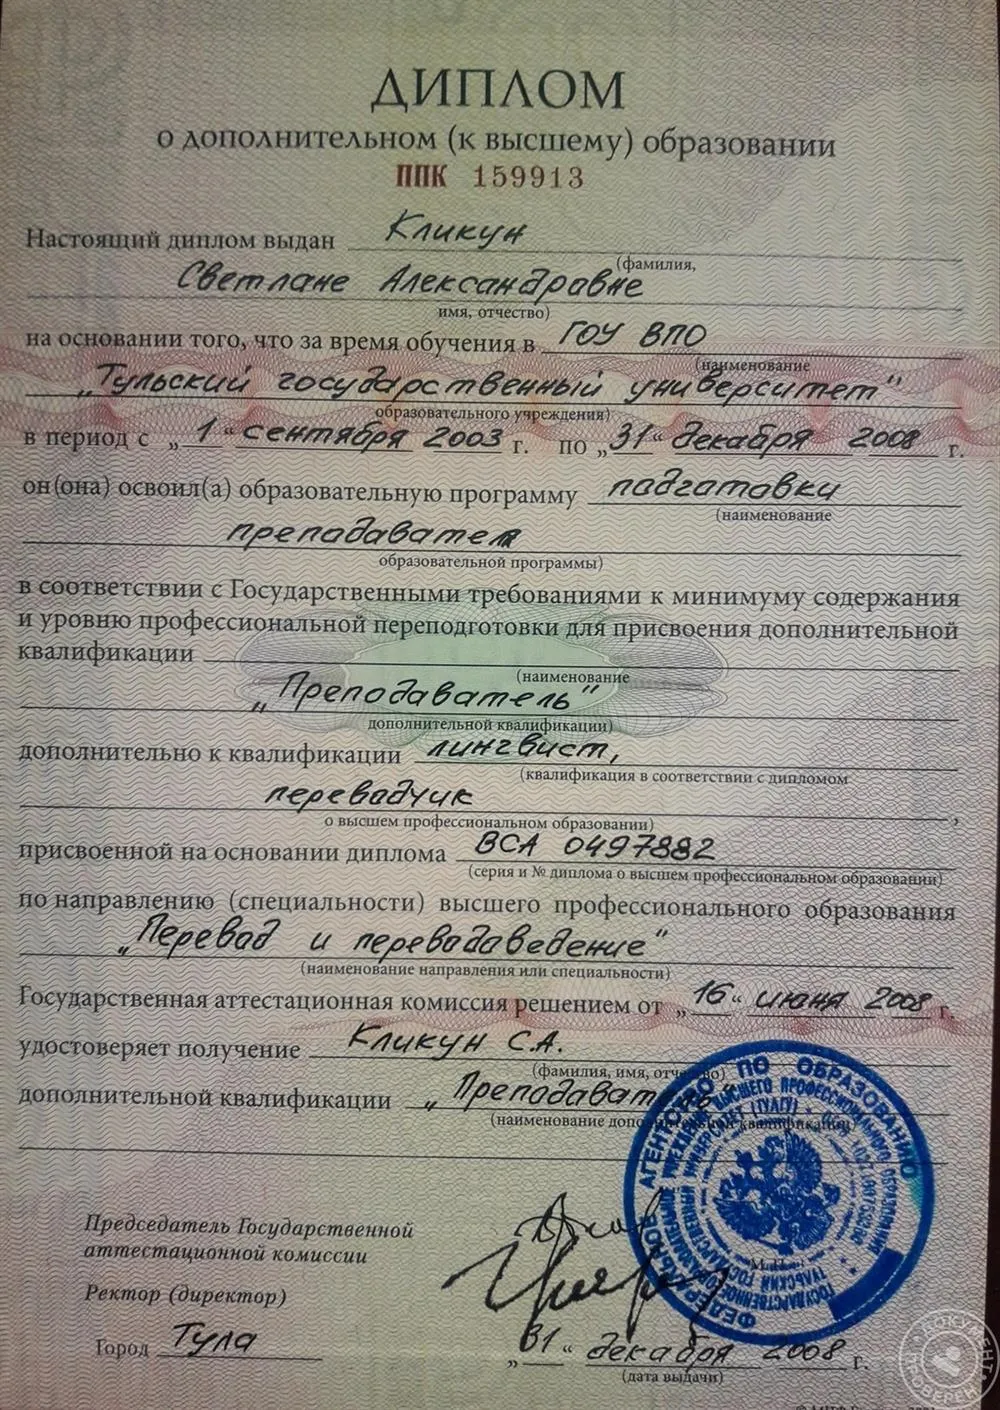 ДИПЛОМ
о дополнительном (к высшему) образовании
ППК 159913
Настоящий диплом выдан Кликун
(фамилия,
Светлане Александровне
имя, отчество)
на основании того, что за время обучения в ГОУ ВПО
(наименование
„Тульский государственный университет"
образовательного учреждения)
в период с „1“ сентября 2003 г. по „31“ декабря 2008 г.
он(она) освоил(а) образовательную программу подготовки
(наименование
преподавателя
образовательной программы)
в соответствии с Государственными требованиями к минимуму содержания
и уровню профессиональной переподготовки для присвоения дополнительной
квалификации
(наименование
„Преподаватель"
дополнительной квалификации)
дополнительно к квалификации лингвист,
(квалификация в соответствии с дипломом
переводчик,
о высшем профессиональном образовании)
присвоенной на основании диплома ВСА 0497882
(серия и № диплома о высшем профессиональном образовании)
по направлению (специальности) высшего профессионального образования
„Перевод и переводоведение"
(наименование направления или специальности)
Государственная аттестационная комиссия решением от „16“ июня 2008 г.
удостоверяет получение Кликун С.А.
(фамилия, имя, отчество)
дополнительной квалификации „Преподаватель"
(наименование дополнительной квалификации)
ФЕДЕРАЛЬНОЕ АГЕНТСТВО ПО ОБРАЗОВАНИЮ
Председатель Государственной
аттестационной комиссии
Ректор (директор)
Город Тула „31“ декабря 2008 г.
(дата выдачи)
ДОКУМЕНТ ПРОВЕРЕН